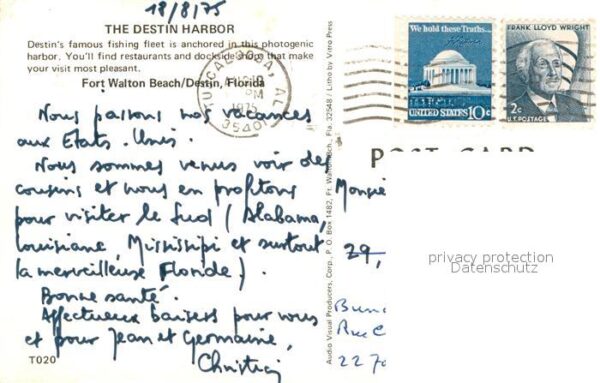 18/8/75
THE DESTIN HARBOR
Destin's famous fishing fleet is anchored in this photogenic
harbor. You'll find restaurants and dockside shops that make
your visit most pleasant.
Fort Walton Beach/Destin, Florida
Nous passons nos vacances
aux Etats-Unis.
Nous sommes venus voir des
cousins et nous en profitons
pour visiter le Sud (Alabama,
Louisiane, Mississipi et surtout
la merveilleuse Floride).
Bonne santé.
Affectueux baisers pour vous
et pour Jean et Germaine,
T020
TUSCALOOSA, AL
PM
1975
35401
Audio Visual Producers, Corp., P.O. Box 1482, Ft. Walton Bch., Fla. 32548 / Litho by Vitro Press
We hold these Truths...
UNITED STATES 10c
FRANK LLOYD WRIGHT
2c
U.S. POSTAGE
POST CARD
Monsie
29,
privacy protection
Datenschutz
Rue C